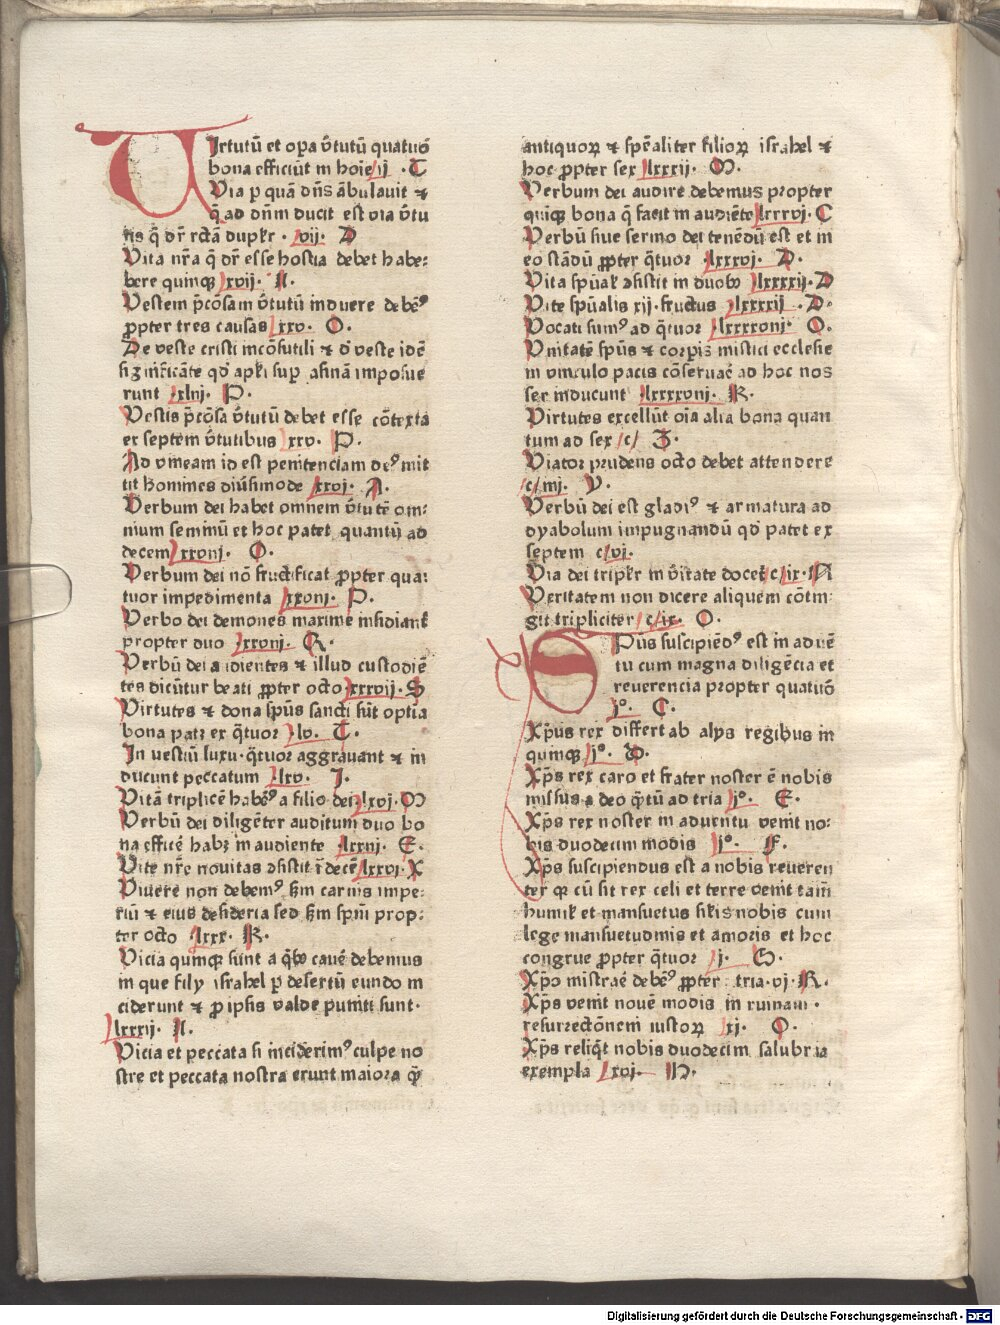 Uirtutū et opa v̄tutū quatuō
bona efficiūt in hoīe ij .T
Via p quā dn̄s ābulauit ⁊
q̄ ad dn̄m ducit est via v̄tu
tis q̄ dr̄ rctā duplr . vij. D
Vita nr̄a q̄ dr̄ esse hostia debet habe⸗
bere quinqꝫ xvij. A.
Vestem p̄cōsam v̄tutū induere debēꝰ
ꝓpter tres causas xxv. O.
De veste cristi incōsutili ⁊ d̓ veste idē
significāte qd̓ apl̓i sup̱ asinā imposue
runt xlvij. P.
Vestis p̄cōsa v̄tutū debet esse cōtexta
ex septem v̄tutibus xxv. P.
Ad vineam id est penitenciam deꝰ mit
tit homines diūsimode xxvj. A.
Verbum dei habet omnem v̄tutē om⸗
nium seminū et hoc patet quantū ad
decem xxvij. O.
Verbum dei nō fructificat ꝓpter qua⸗
tuor impedimenta xxvij. P.
Verbo dei demones maxime insidiant̃
propter duo xxvij. R.
Verbū dei audientes ⁊ illud custodiē
tes dicūtur beati ꝓpter octo xxxvij. S
Virtutes ⁊ dona sp̄us sancti sūt optīa
bona patꝫ ex q̄tuor lv. T.
In vestiū luxu q̄tuor aggrauant ⁊ in
ducunt peccatum lxv. I.
Vitā triplicē habēꝰ a filio dei lxvj. M
Verbū dei diligēter auditum duo bo
na efficē habꝫ in audiente lxxij. E.
Vite nr̄e nouitas ꝯsistit ī decē lxxvj. X
Viuere non debemꝰ ẜm carnis impe⸗
riū ⁊ eius desideria sed ẜm sp̄m prop⸗
ter octo lxxx. R.
Vicia quinqꝫ sunt a q̄bꝰ cauē debemus
in que fily israhel p̱ desertū eundo in
ciderunt ⁊ ꝓ ipsis valde puniti sunt.
lxxxij. A.
Vicia et peccata si inciderimꝰ culpe no
stre et peccata nostra erunt maiora q̄ꝫ
antiquoꝝ ⁊ sp̄ealiter filioꝝ israhel ⁊
hoc ꝓpter sex lxxxij. M.
Verbum dei audire debemus propter
quiqꝫ bona q̄ facit in audiēte lxxxvj. C
Verbū siue sermo dei tenēdū est et in
eo stādū ꝓpter q̄tuor lxxxvj. D.
Vita sp̄ual̓ ꝯsistit in duobꝰ lxxxxij. D
Vite sp̄ualis xij. fructus lxxxxij .D.
Vocati sumꝰ ad q̄tuor lxxxxvij. O.
Vnitatē sp̄us ⁊ corpis mistici ecclesie
in vinculo pacis cōseruaē ad hoc nos
ser inducunt lxxxxvij. R.
Virtutes excellūt oīa alia bona quan
tum ad sex c/ Z.
Viator prudens octo debet attendere
c/iiij. V.
Verbū dei est gladiꝰ ⁊ armatura ad
dyabolum impugnandū qd̓ patet ex
septem c/vj.
Via dei triplr̄ in v̄itate docet̃ c/ix. N
Veritatem non dicere aliquem cōtin⸗
git tripliciter c/ix. O.
Xpūs suscipiēdꝰ est in aduē
tu cum magna diligēcia et
reuerencia propter quatuō
jº. C.
Xp̄us rex differt ab alys regibus in
quinqꝫ jº. D.
Xp̄s rex caro et frater noster ē nobis
missus a deo q̄ꝫtū ad tria jº. E.
Xp̄s rex noster in aduentu venit no⸗
bis duodecim modis jº. F.
Xp̄s suscipiendus est a nobis reueren
ter qꝫ cū sit rex celi et terre venit tam̄
humil̓ et mansuetus sil̓is nobis cum
lege mansuetudinis et amoris et hoc
congrue ꝓpter q̄tuor j. G.
Xp̄o mistraē debēꝰ ꝓpter tria. vj. R.
Xp̄s venit nouē modis in ruinam .
resurrectōnem iustoꝝ xj. O.
Xp̄s reliq̄t nobis duodecim salubria
exempla xvj. H.
Digitalisierung gefördert durch die Deutsche Forschungsgemeinschaft - DFG